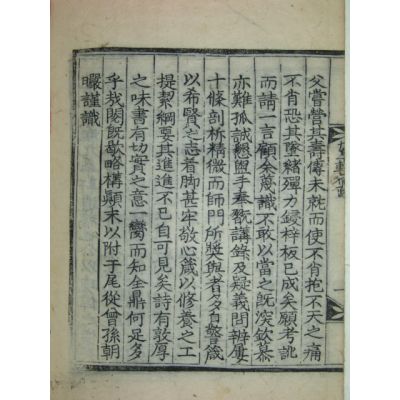 父嘗營其壽傳未就而使不肖抱不天之痛
不肖恐其墜緒殫力鋟梓板已成矣願考訛
而請一言顧余蔑識不敢以當之旣深欽慕
亦難孤誠懇盥手奉翫講錄及疑義問辨屢
十條剖析精微而師門所奬與者多自警箴
以希賢之志者脚甚牢敬心箴以修養之工
提絜綱要其進進不已自可見矣詩有敦厚
之味書有切實之意一臠而知全鼎何足多
乎哉閱旣歇略構顚末以附于尾從曾孫朝
㬇謹識